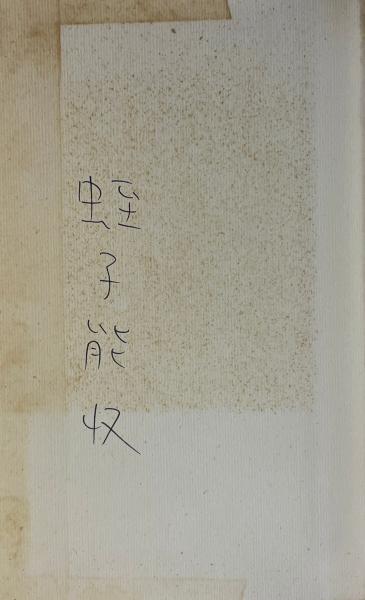 蛭子能収